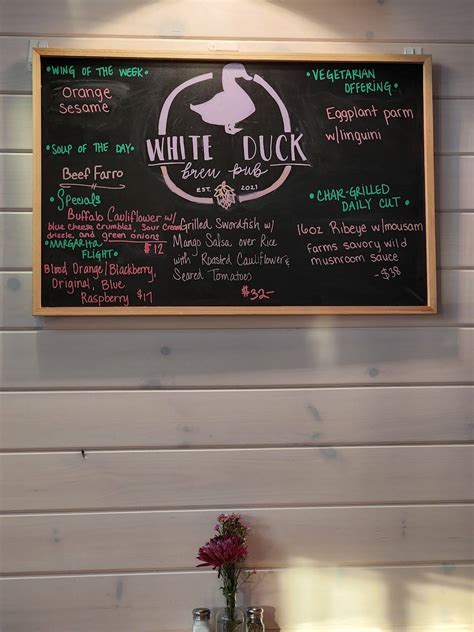 • WING OF THE WEEK •
Orange
Sesame
• SOUP OF THE DAY •
Beef Farro
• Specials
Buffalo Cauliflower w/
blue cheese crumbles, Sour Cream
drizzle, and green onions
$12
• MARGARITA
FLIGHT •
Blood Orange/Blackberry,
Original, Blue
Raspberry $17
WHITE DUCK
brew pub
EST. 2021
Grilled Swordfish w/
Mango Salsa over Rice
with Roasted Cauliflower &
Seared Tomatoes
$32-
• VEGETARIAN
OFFERING •
Eggplant parm
w/linguini
• CHAR-GRILLED
DAILY CUT •
16oz Ribeye w/mousam
farms savory wild
musnroom sauce
- $38